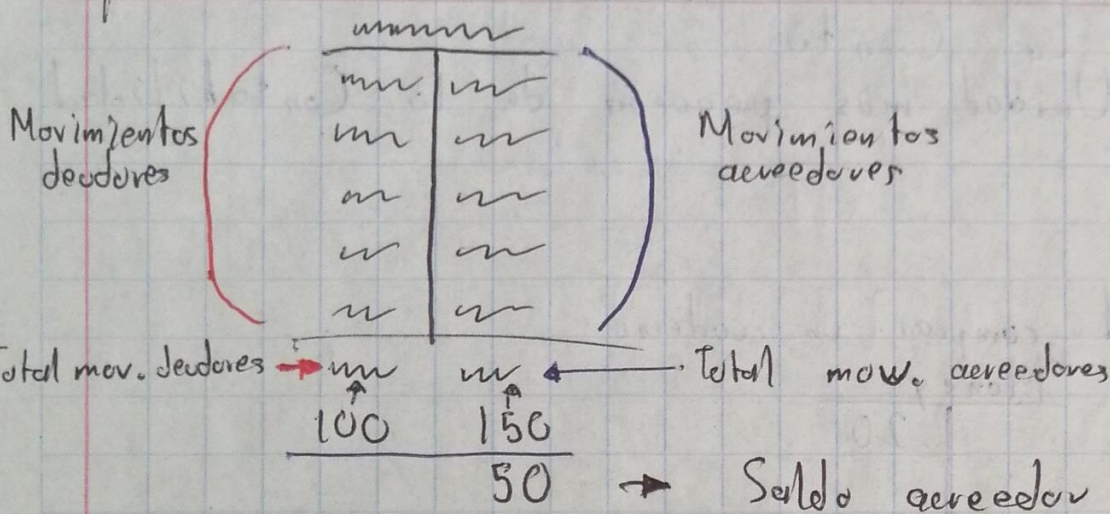 Movimientos
deudores
Movimientos
acreedores
Total mov. deudores
Total mov. acreedores
100 150
50 Saldo acreedor